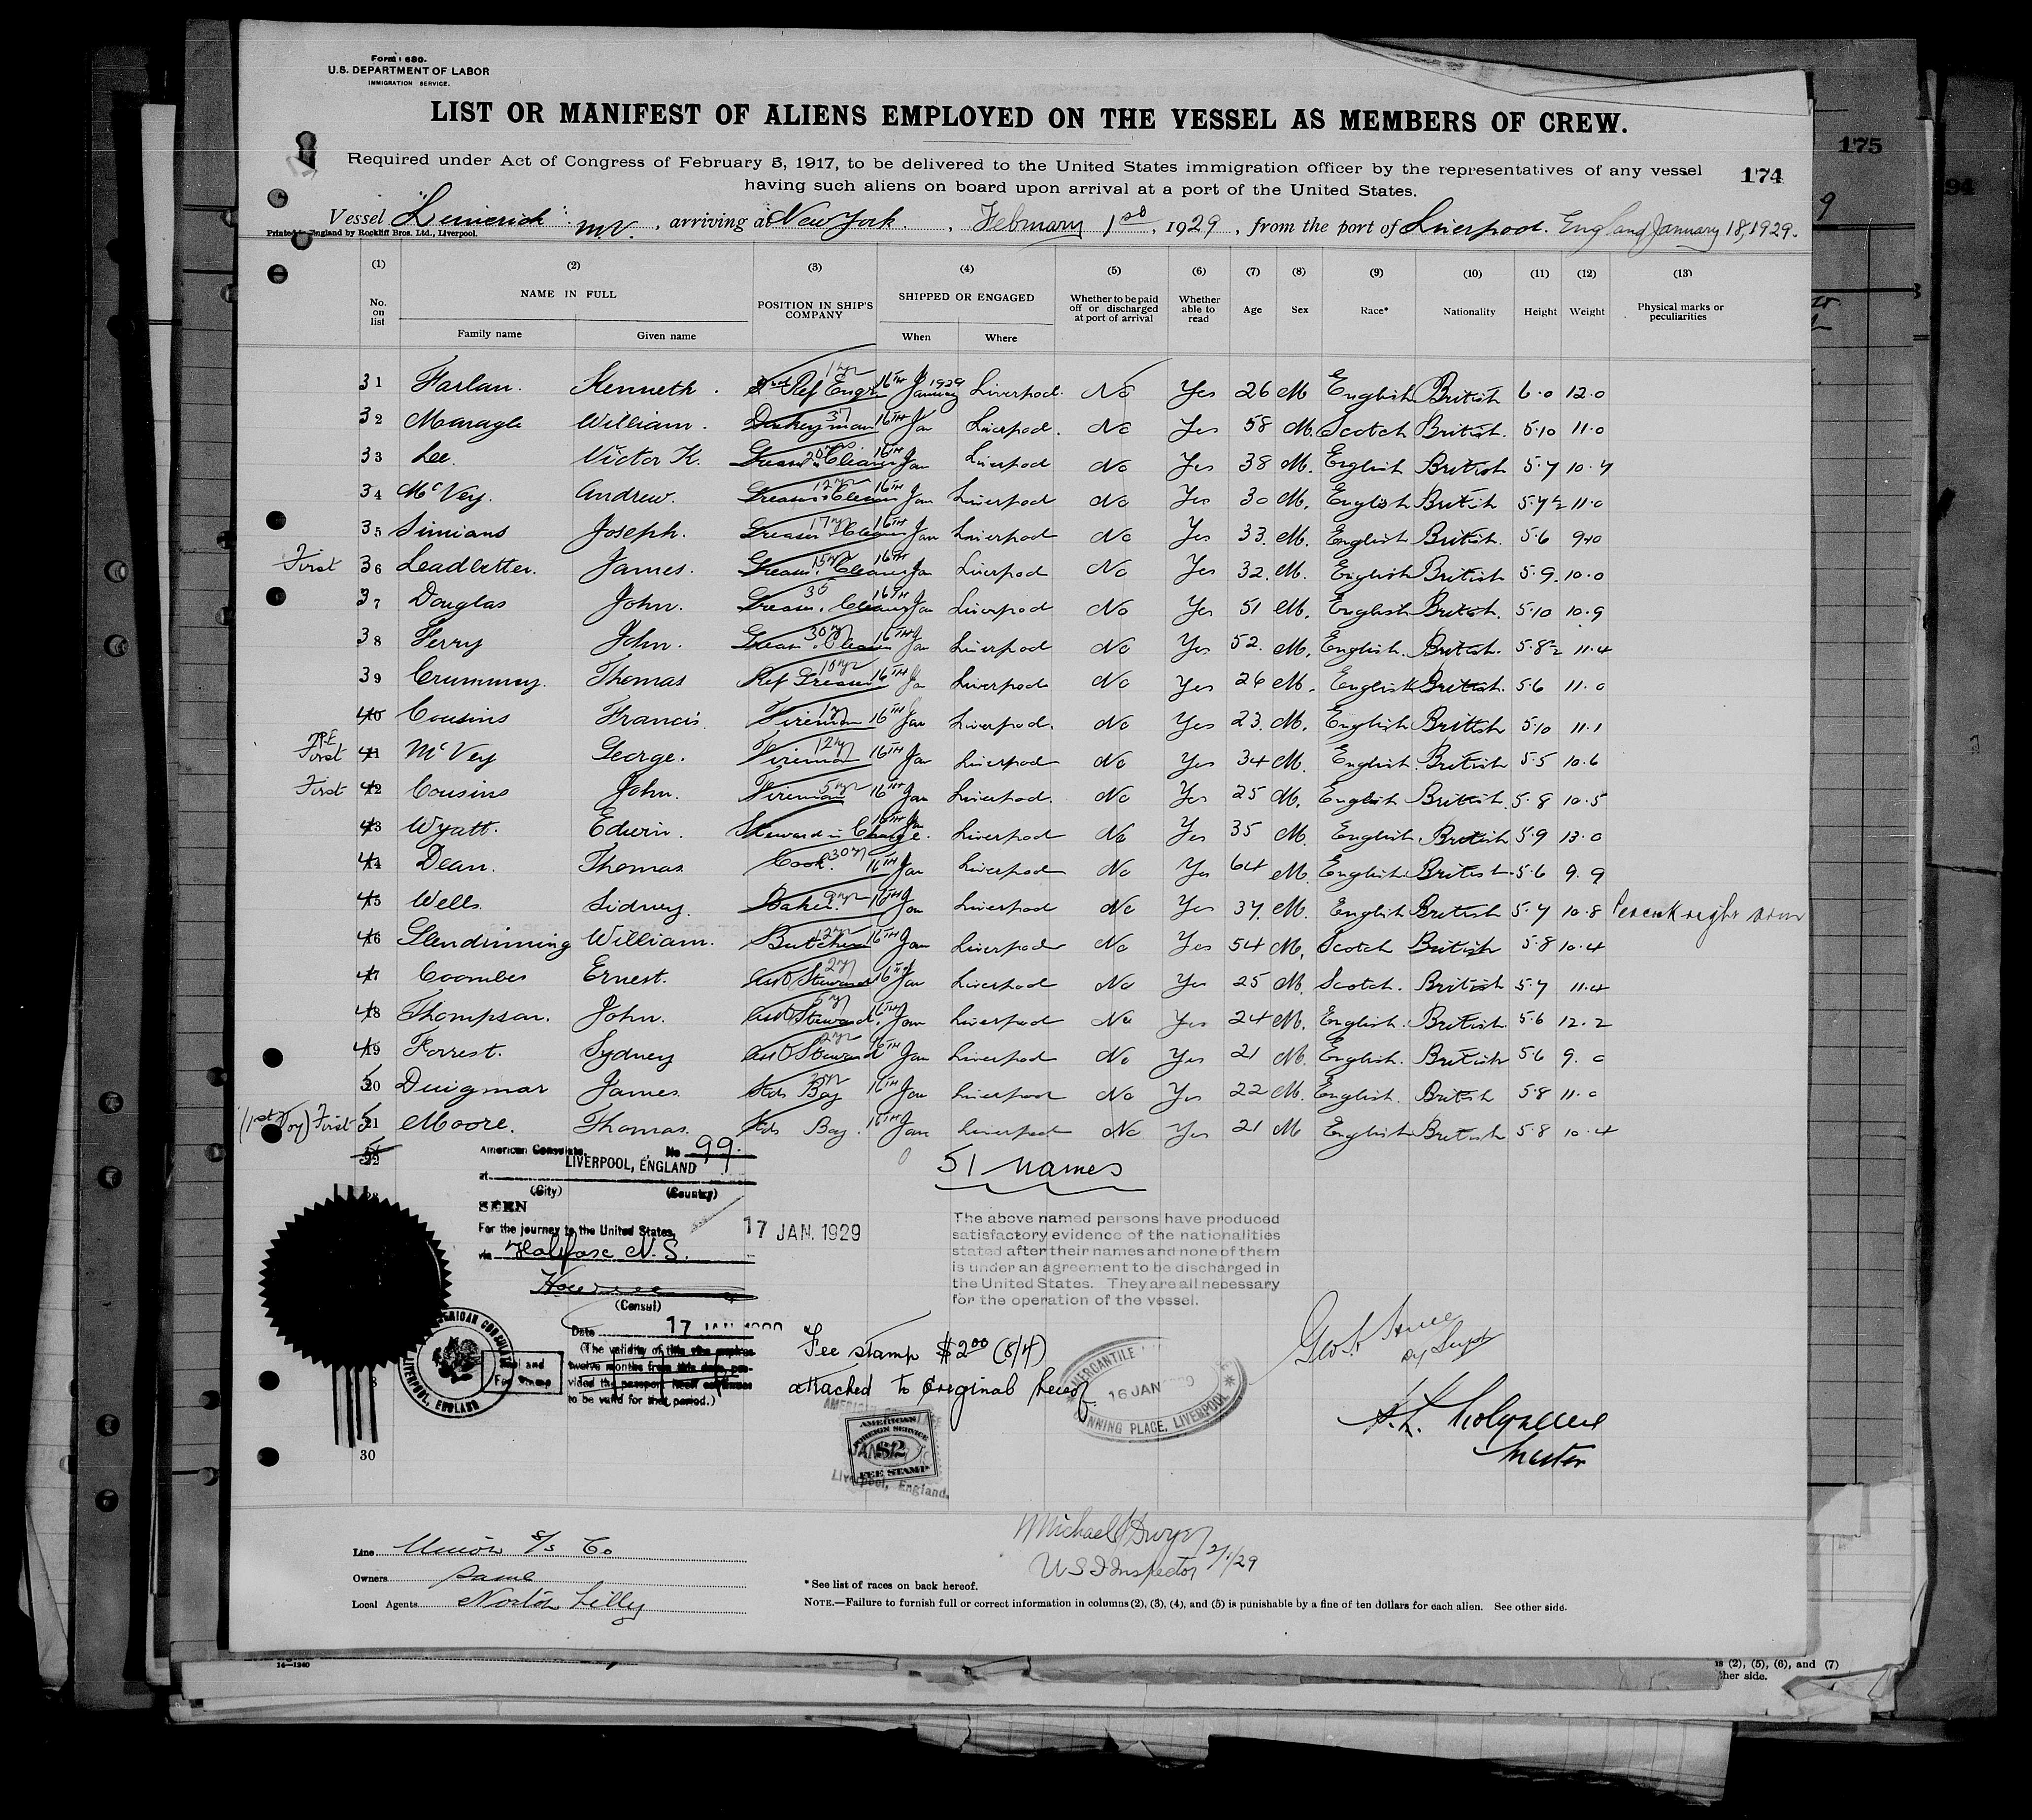 Form 680.
U.S. DEPARTMENT OF LABOR
IMMIGRATION SERVICE.
LIST OR MANIFEST OF ALIENS EMPLOYED ON THE VESSEL AS MEMBERS OF CREW.
Required under Act of Congress of February 5, 1917, to be delivered to the United States immigration officer by the representatives of any vessel
having such aliens on board upon arrival at a port of the United States.
174
175
94
Vessel "Limerick" M.V., arriving at New York, February 1st, 1929, from the port of Liverpool. England January 18, 1929.
Printed in England by Rockliff Bros. Ltd., Liverpool.
(1) (2) (3) (4) (5) (6) (7) (8) (9) (10) (11) (12) (13)
No. on list NAME IN FULL POSITION IN SHIP'S COMPANY SHIPPED OR ENGAGED Whether to be paid off or discharged at port of arrival Whether able to read Age Sex Race* Nationality Height Weight Physical marks or peculiarities
Family name Given name When Where
31 Farlan. Kenneth. Ref Engr 16TH January 1929 Liverpool. No Yes 26 M English British 6.0 12.0
32 William. Donkeyman 16TH Jan Liverpool. No Yes 58 M. Scotch British. 5.10 11.0
33 Lee. Victor K. Greaser & Cleaner 16TH Jan Liverpool No Yes 38 M. English British 5.7 10.7
34 McVey. Andrew. 12 yr Greaser & Cleaner 16TH Jan Liverpool No Yes 30 M. English British 5.7½ 11.0
35 Simians Joseph. 17 yr Greaser & Cleaner 16TH Jan Liverpool No Yes 33. M. English British. 5.6 9.10
First 36 Leadbetter. James. 15 yr Greaser & Cleaner 16TH Jan Liverpool No Yes 32. M. English British 5.9. 10.0
37 Douglas John. 30 Greaser & Cleaner 16TH Jan Liverpool No Yes 51 M. English British. 5.10 10.9
38 Ferry John. 30 yr Greaser & Cleaner 16TH Jan Liverpool No Yes 52. M. English. British. 5.8½ 11.4
39 Crummey. Thomas 10 yr Ref Greaser 16TH Jan Liverpool No Yes 26 M. English British. 5.6 11.0
40 Cousins Francis. 1 yr Fireman 16TH Jan Liverpool. No Yes 23. M. English British 5.10 11.1
First 41 McVey George. 12 yr Fireman 16TH Jan Liverpool No Yes 34 M. English. British 5.5 10.6
First 42 Cousins John. 5 yr Fireman 16TH Jan Liverpool. No Yes 25 M. English British. 5.8 10.5
43 Wyatt. Edwin. Steward in Charge. 16TH Jan Liverpool No Yes 35 M. English. British 5.9 13.0
44 Dean. Thomas Cook. 30 yr 16TH Jan Liverpool No Yes 64 M. English British 5.6 9.9
45 Wells. Sidney. Baker. 9 yr 16TH Jan Liverpool No Yes 37. M. English British 5.7 10.8 right arm
46 Glendinning William. 12 yr Butcher 16TH Jan Liverpool No Yes 54 M. Scotch British 5.8 10.4
47 Coombes Ernest. 2 yr Asst Steward 16TH Jan Liverpool No Yes 25 M. Scotch. British 5.7 11.4
48 Thompson. John. Asst Steward. 16TH Jan Liverpool No Yes 24 M. English. British. 5.6 12.2
49 Forrest. Sydney 2 yr Asst Steward 16TH Jan Liverpool No Yes 21 M. English. British 5.6 9.0
50 Duigmar James. Stds Boy 16TH Jan Liverpool No Yes 22 M. English. British 5.8 11.0
(1st Voy) First 51 Moore. Thomas. Stds Boy. 16TH Jan Liverpool No Yes 21 M English British 5.8 10.4
52
51 Names
American Consulate, No 99.
at LIVERPOOL, ENGLAND
(City) (Country)
SEEN
For the journey to the United States,
via Halifax N.S.
17 JAN. 1929
(Consul)
Date 17 JAN
(The validity of this visa expires
twelve months from this date, pro-
vided the passport itself continues
to be valid for that period.)
AMERICAN CONSULATE
LIVERPOOL, ENGLAND
The above named persons have produced
satisfactory evidence of the nationalities
stated after their names and none of them
is under an agreement to be discharged in
the United States. They are all necessary
for the operation of the vessel.
Fee stamp $2.00 (8/4)
attached to original hereof
MERCANTILE
16 JAN
CANNING PLACE, LIVERPOOL
AMERICAN
FOREIGN SERVICE
$2
FEE STAMP
Liverpool, England.
Master
30
Michael Dwyer
U S I Inspector 2/1/29
Line Union S/S Co
Owners same
Local Agents Norton Lilly
* See list of races on back hereof.
NOTE.—Failure to furnish full or correct information in columns (2), (3), (4), and (5) is punishable by a fine of ten dollars for each alien. See other side.
14—1240
(2), (5), (6), and (7)
other side.